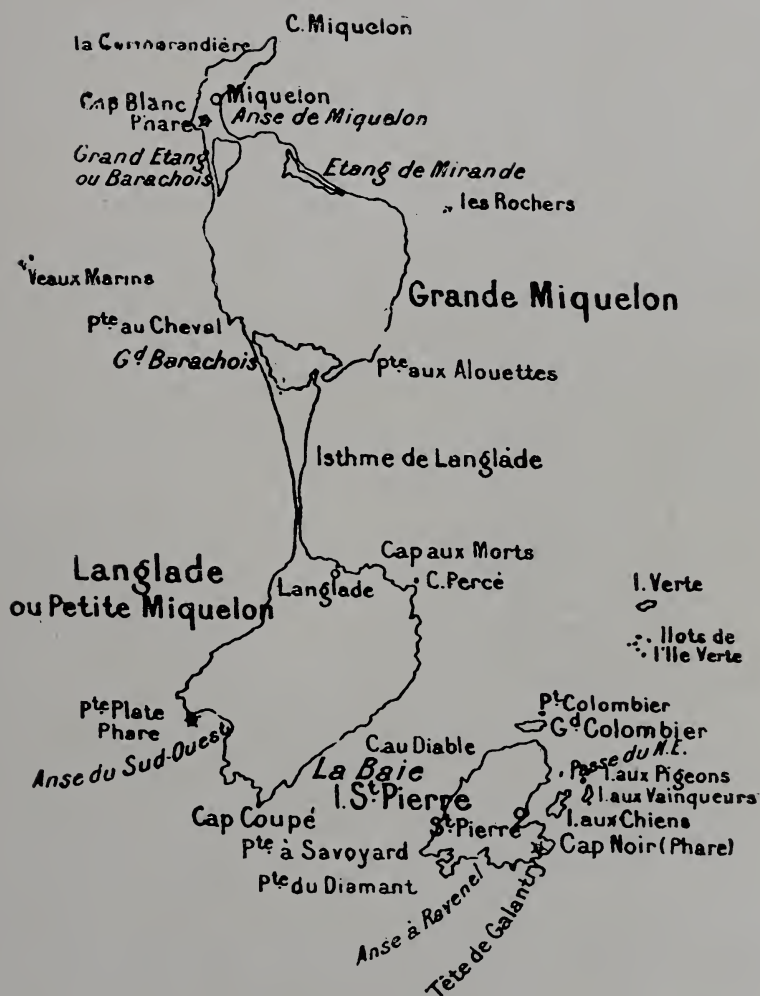 C. Miquelon
la Cormorandière
Cap Blanc
Phare
Miquelon
Anse de Miquelon
Grand Etang
ou Barachois
Etang de Mirande
les Rochers
Veaux Marins
Grande Miquelon
Pte au Cheval
Gd Barachois
Pte aux Alouettes
Isthme de Langlade
Langlade
ou Petite Miquelon
Cap aux Morts
Langlade
C. Percé
I. Verte
Ilots de
l'Ile Verte
Pte Plate
Phare
Anse du Sud-Ouest
Pt Colombier
Gd Colombier
C. au Diable
Passe du N.E.
La Baie
I. aux Pigeons
I. St Pierre
I. aux Vainqueurs
Cap Coupé
St Pierre
I. aux Chiens
Pte à Savoyard
Cap Noir (Phare)
Pte du Diamant
Anse à Ravenel
Tête de Galantry